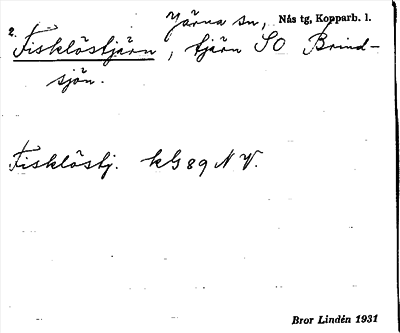 Järna sn, Nås tg, Kopparb. l.
2. Fisklöstjärn, tjärn SO Brind-
sjön.
Fisklöstj. kG 89 N V.
Bror Lindén 1931